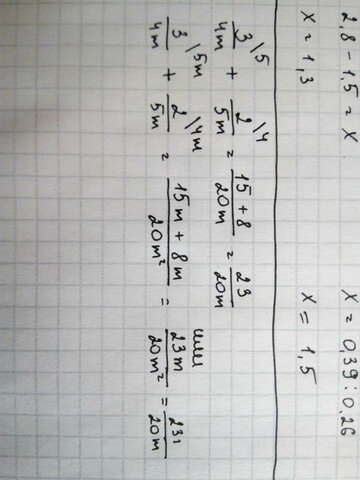 2,8 - 1,5 = x    x = 0,39 : 0,26
x = 1,3    x = 1,5
3/4m \5 + 2/5m \4 = (15 + 8)/20m = 23/20m
или
3/4m \5m + 2/5m \4m = (15m + 8m)/20m² = 23m/20m² = 23/20m